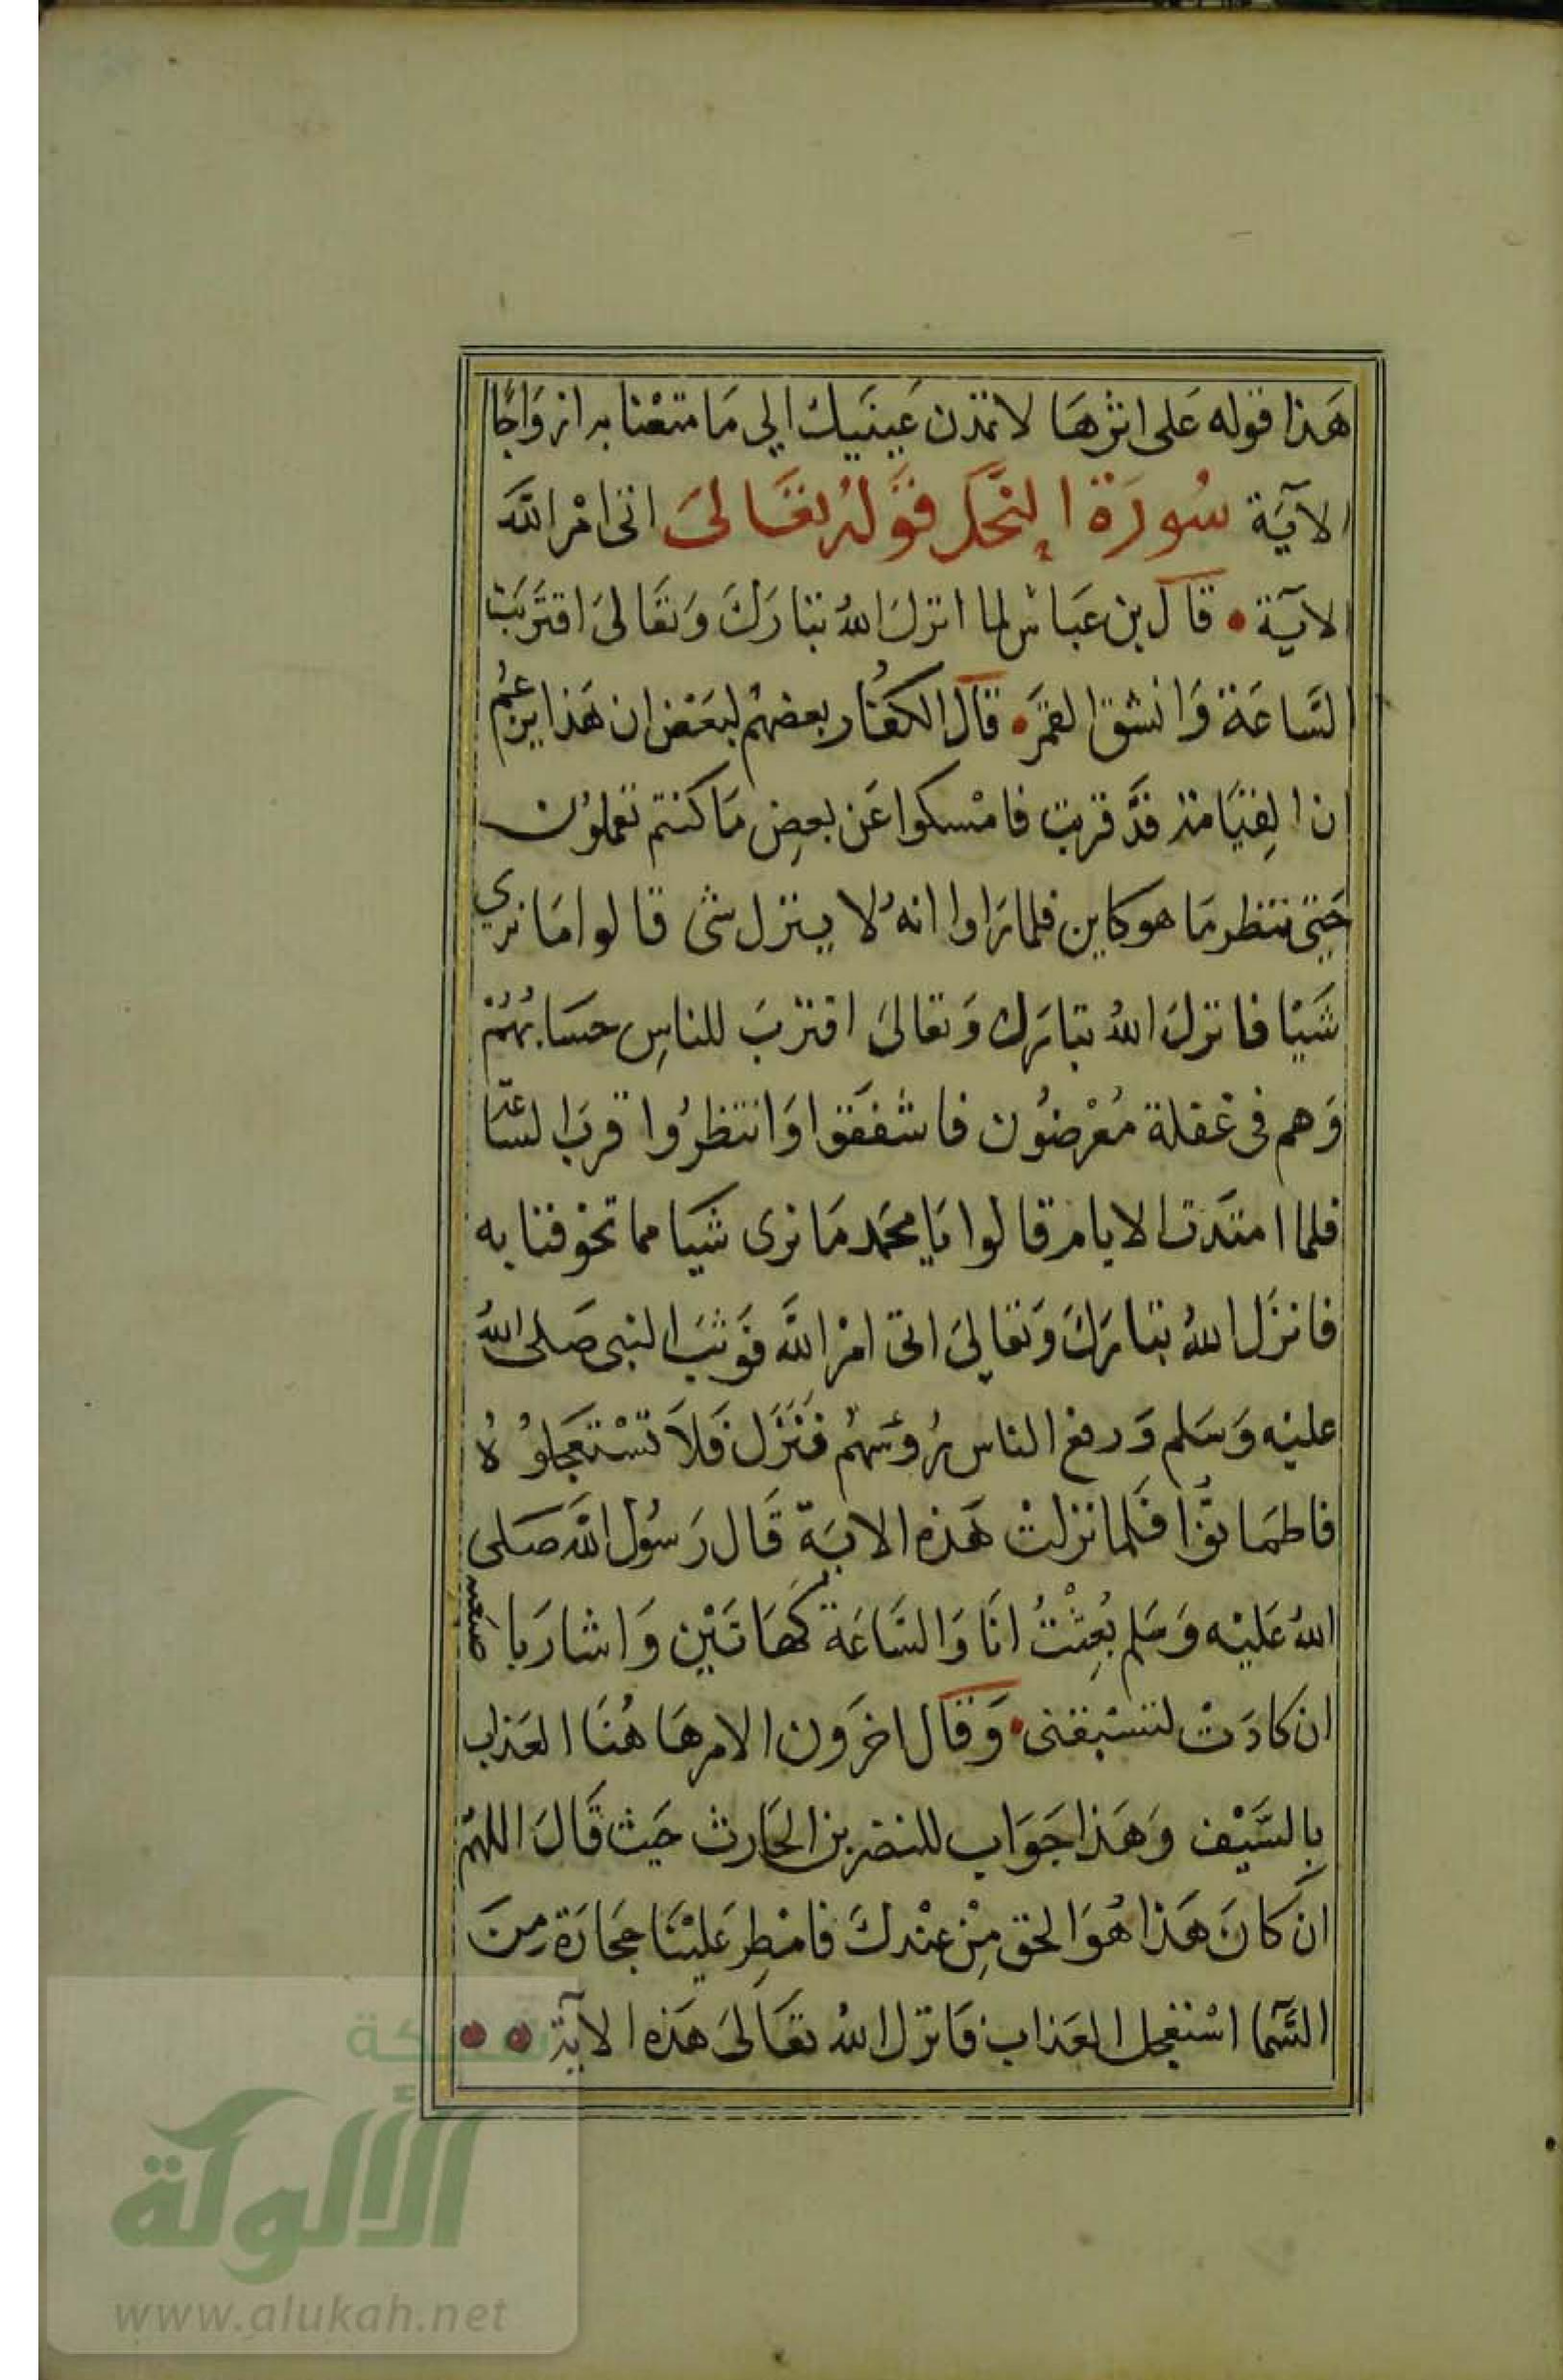 هَذا قوله عَلى اثرهَا لا تمدن عَينَيك الي مَا متعْنا به ازوَاجًا
الآيَة سُورَة النحَل قوَّلهُ تعَالىَ اتى امْر اللَّه
الآيَة • قال بن عَباس لما انزلَ اللهُ تبَارَكَ وَتعَالىَ اقترَبَت
السَّاعَة وَانشق القمَرَ • قال الكفُار بعضهُم لبعَض ان هَذا يزعُم
ان القِيَامة قدَّ قربت فامْسكوا عَن بعضِ مَا كنتم تعملوُن
حَتى ننتظر مَا هو كاين فلما رَاوا انهُ لا ينزل شى قالوا مَا نري
شَيًا فانزلَ اللهُ تبَارَك وَتعالىَ اقتربَ للناسِ حسَابهُمُ
وَهم فى غفلة مُعْرضوُن فاشفَقوا وَانتظرُوا قربَ السَّاعَة
فلما امتدَت الايام قالوا يَا محَمد مَا نرى شَيا مما تخوفنا به
فانزَل اللهُ تبَارَكَ وَتعَاليَ اتى امْر اللَّه فوَثبَ النبى صَلى اللهُ
عليْه وَسَلم وَرفع الناس رُؤسَهُم فنَزَل فَلاَ تسْتَعجلوُهُ
فاطمَانوُّا فَلما نزلتْ هَذه الايَة قَال رَسُول اللَّه صَلى
اللهُ عَليْه وَسَلم بُعِثْتُ انَا وَالسَّاعَة كهَاتَيْن وَاشارَ با صبعيه
ان كادَتْ لتسْبقنى • وَقال اخرَون الامر هَا هُنَا العَذاب
بِالسَّيْف وَهَذا جَوَاب للنضر بن الحَارث حَيث قَالَ اللهُم
ان كانَ هَذا هُوَ الحق مِنْ عنْدكَ فامْطِر عَليْنَا حجَارَة مِنَ
السَّمآ اسْتعْجل العَذاب فَانزل اللهُ تعَالىَ هَذه الآية • •
شبكة
الألوكة
www.alukah.net